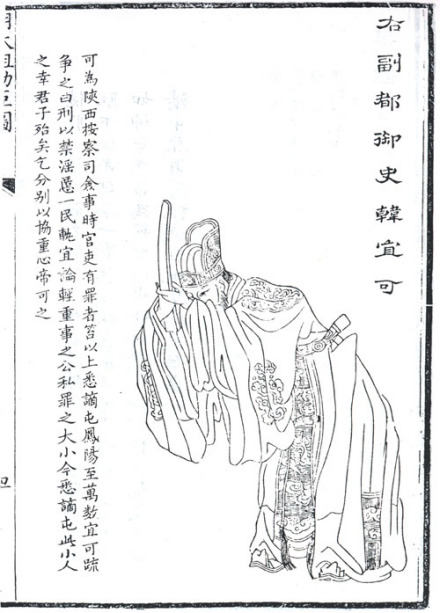 右副都御史韓宜可
可為陝西按察司僉事時官吏有罪者笞以上悉謫屯鳳陽至萬數宜可疏
爭之曰刑以禁淫慝一民軌宜論輕重事之公私罪之大小今悉謫屯此小人
之幸君子殆矣乞分别以協重心帝可之